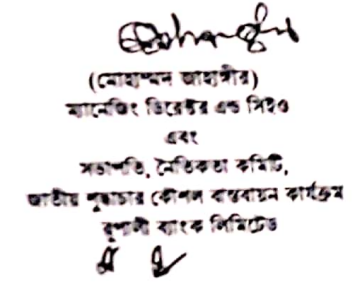 (মোহাম্মদ জাহাঙ্গীর)
ম্যানেজিং ডিরেক্টর এন্ড সিইও
এবং
সভাপতি, নৈতিকতা কমিটি,
জাতীয় শুদ্ধাচার কৌশল বাস্তবায়ন কার্যক্রম
রূপালী ব্যাংক লিমিটেড